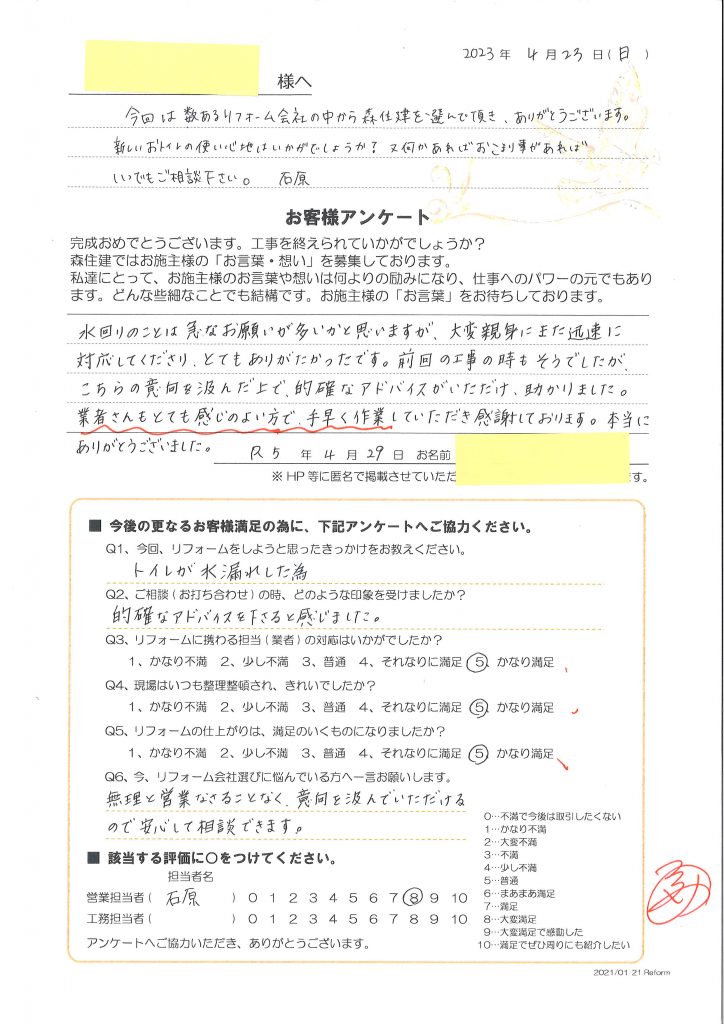 2023年 4月23日(日)
様へ
今回は数あるリフォーム会社の中から森住建を選んで頂き、ありがとうございます。
新しいおトイレの使い心地はいかがでしょうか？又何かあればおこまり事があれば
いつでもご相談下さい。 石原
お客様アンケート
完成おめでとうございます。工事を終えられていかがでしょうか？
森住建ではお施主様の「お言葉・想い」を募集しております。
私達にとって、お施主様のお言葉や想いは何よりの励みになり、仕事へのパワーの元でもあり
ます。どんな些細なことでも結構です。お施主様の「お言葉」をお待ちしております。
水回りのことは急なお願いが多いかと思いますが、大変親身にまた迅速に
対応してくださり、とてもありがたかったです。前回の工事の時もそうでしたが、
こちらの意向を汲んだ上で、的確なアドバイスがいただけ、助かりました。
業者さんもとても感じのよい方で、手早く作業していただき感謝しております。本当に
ありがとうございました。 R5年4月29日 お名前
※HP等に匿名で掲載させていただ す。
■ 今後の更なるお客様満足の為に、下記アンケートへご協力ください。
Q1、今回、リフォームをしようと思ったきっかけをお教えください。
トイレが水漏れした為
Q2、ご相談(お打ち合わせ)の時、どのような印象を受けましたか？
的確なアドバイスを下さると感じました。
Q3、リフォームに携わる担当(業者)の対応はいかがでしたか？
1、かなり不満 2、少し不満 3、普通 4、それなりに満足 5、かなり満足
Q4、現場はいつも整理整頓され、きれいでしたか？
1、かなり不満 2、少し不満 3、普通 4、それなりに満足 5、かなり満足
Q5、リフォームの仕上がりは、満足のいくものになりましたか？
1、かなり不満 2、少し不満 3、普通 4、それなりに満足 5、かなり満足
Q6、今、リフォーム会社選びに悩んでいる方へ一言お願いします。
無理と営業なさることなく、意向を汲んでいただける
ので安心して相談できます。
■ 該当する評価に○をつけてください。
担当者名
営業担当者( 石原 ) 0 1 2 3 4 5 6 7 8 9 10
工務担当者( ) 0 1 2 3 4 5 6 7 8 9 10
アンケートへご協力いただき、ありがとうございます。
0…不満で今後は取引したくない
1…かなり不満
2…大変不満
3…不満
4…少し不満
5…普通
6…まあまあ満足
7…満足
8…大変満足
9…大変満足で感動した
10…満足でぜひ周りにも紹介したい
2021/01 21 Reform